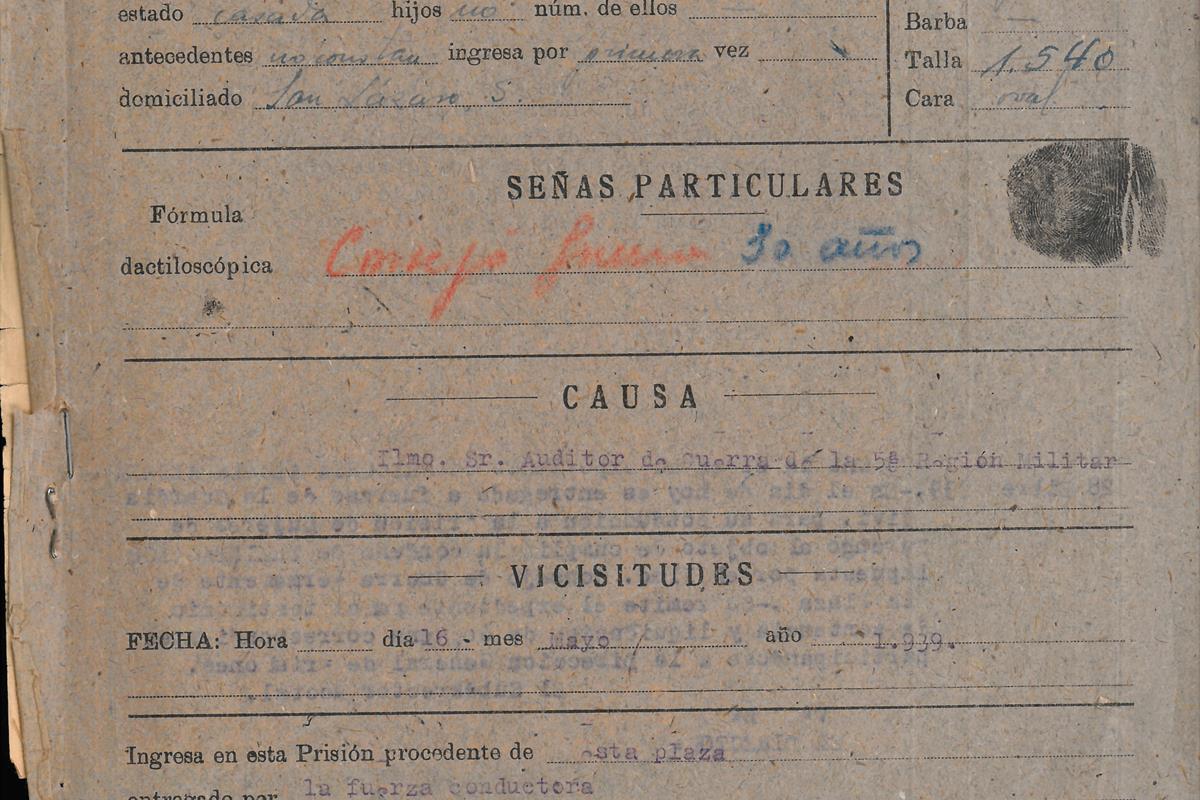 estado casada hijos no núm. de ellos —
Barba —
antecedentes no constan ingresa por primera vez
Talla 1.540
domiciliado San Lázaro 5.
Cara oval
SEÑAS PARTICULARES
Fórmula
dactiloscópica Consejo Guerra 30 años
CAUSA
Ilmo. Sr. Auditor de Guerra de la 5ª Región Militar
VICISITUDES
FECHA: Hora día 16 - mes Mayo / año 1.939.
Ingresa en esta Prisión procedente de esta plaza
entregado por la fuerza conductora